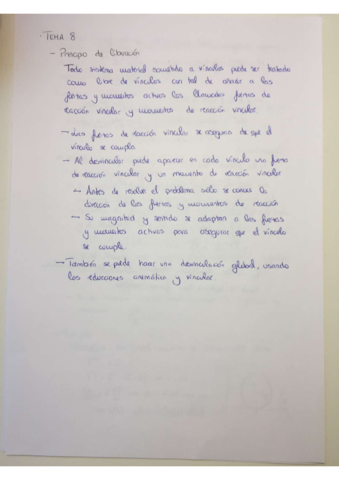 TEMA 8
- Principio de liberación
Todo sistema material sometido a vínculos puede ser tratado
como libre de vínculos con tal de añadir a las
fuerzas y momentos activos las llamadas fuerzas de
reacción vincular y momentos de reacción vincular.
- Las fuerzas de reacción vincular se aseguran de que el
vínculo se cumpla.
- Al desvincular puede aparecer en cada vínculo una fuerza
de reacción vincular y un momento de reacción vincular
- Antes de resolver el problema sólo se conoce la
dirección de las fuerzas y momentos de reacción
- Su magnitud y sentido se adaptan a las fuerzas
y momentos activos para asegurar que el vínculo
se cumpla.
- También se puede hacer una desvinculación global, usando
las ecuaciones cinemática y vincular.